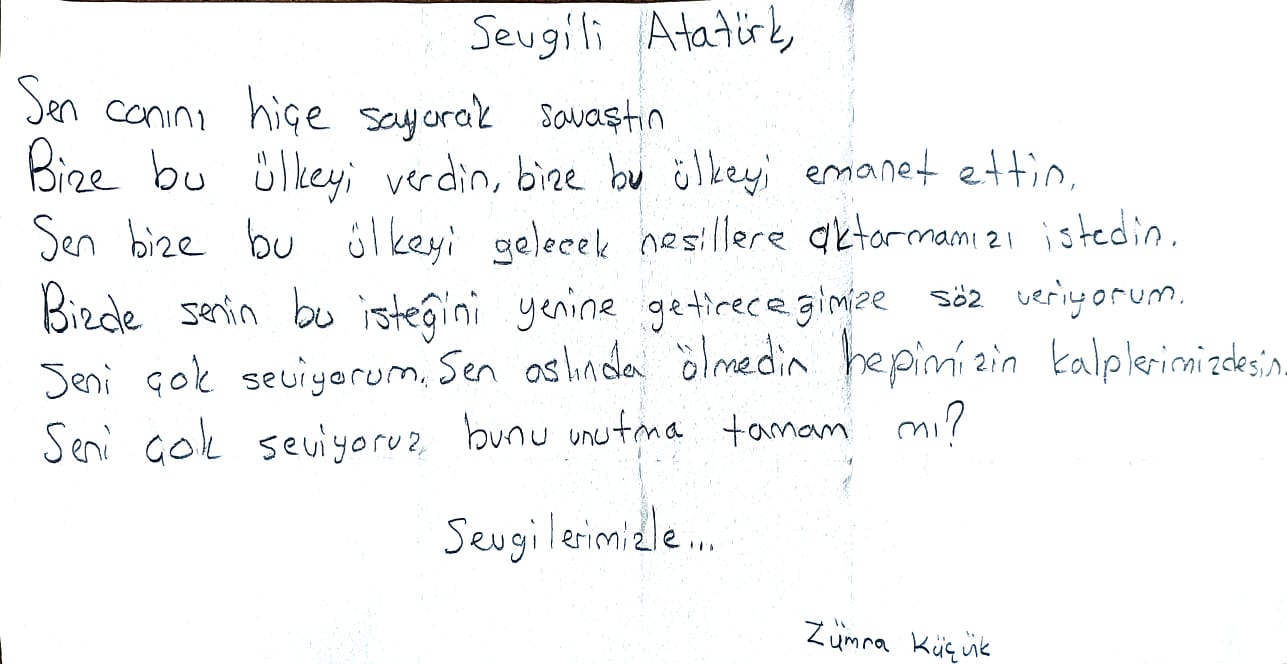 Sevgili Atatürk,
Sen canını hiçe sayarak savaştın
Bize bu ülkeyi verdin, bize bu ülkeyi emanet ettin.
Sen bize bu ülkeyi gelecek nesillere aktarmamızı istedin.
Bizde senin bu isteğini yenine getireceğimize söz veriyorum.
Seni çok seviyorum. Sen aslında ölmedin hepimizin kalplerimizdesin.
Seni çok seviyoruz, bunu unutma tamam mı?
Sevgilerimizle...
Zümra Küçük